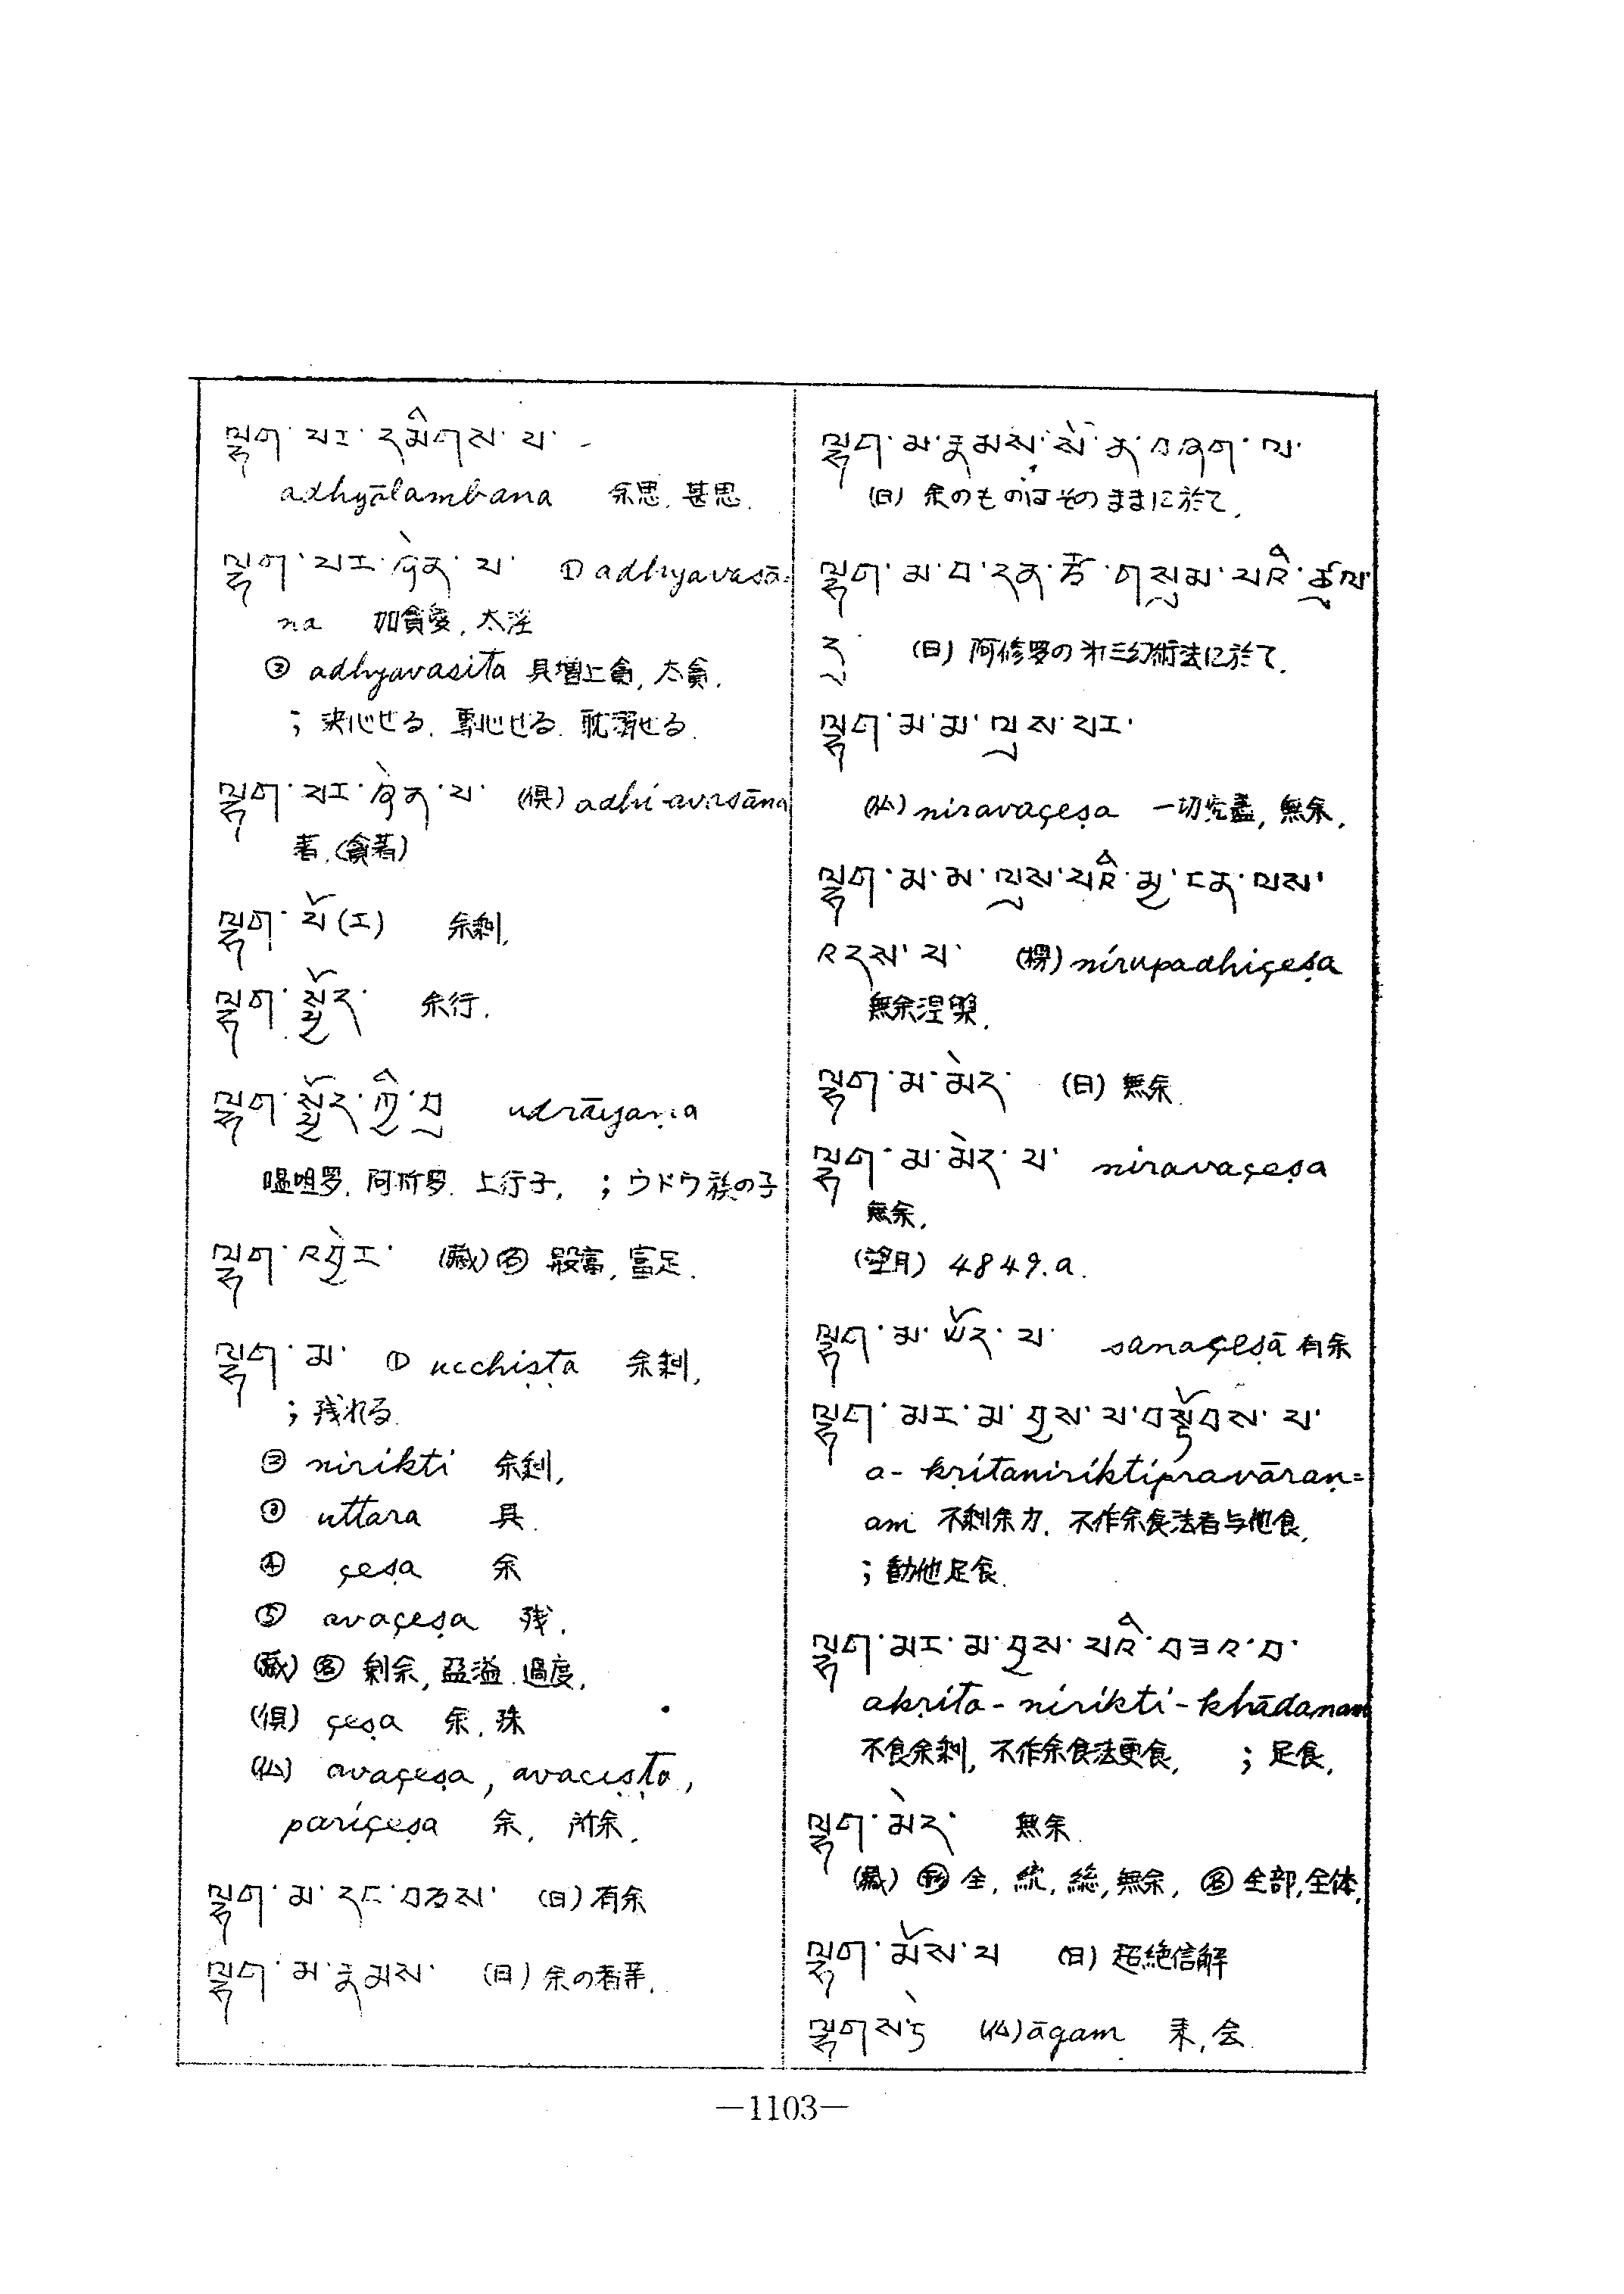 ལྷག་པར་དམིགས་པ་
adhyālambana 余思. 甚思.
ལྷག་པར་ཞེན་པ་ ① adhyavasā-
na 加貪愛, 太淫
② adhyavasita 具增上貪, 太貪.
; 決心せる. 専心せる. 耽溺せる.
ལྷག་པར་ཞེན་པ་ (倶) adhi-avasāna
著. (貪著)
ལྷག་པོ(ར) 余剰,
ལྷག་སྤྱོད་ 余行.
ལྷག་སྤྱོད་ཀྱི་བུ udrāyaṇa
嗢呾罗. 阿所罗. 上行子, ; ウドウ族の子
ལྷག་འབྱེར་ (藏) 名 殷富, 富足.
ལྷག་མ་ ① ucchiṣṭa 余剰,
; 残れる.
② nirikti 余剰,
③ uttara 具.
④ çeṣa 余
⑤ avaçeṣa 残.
(藏) 名 剰余, 盈溢. 過度,
(倶) çeṣa 余. 殊
(仏) avaçeṣa, avaciṣṭa,
pariçeṣa 余, 所余.
ལྷག་མ་དང་བཅས་ (日) 有余
ལྷག་མ་རྣམས་ (日) 余の者等.
ལྷག་མ་རྣམས་སོ་ན་བཞག་ལ་
(日) 余のものはそのままに於て.
ལྷག་མ་བ་དན་ཙོ་གསུམ་པའི་ཚུལ་
དུ (日) 阿修罗の第三幻術法に於て.
ལྷག་མ་མ་ལུས་པར་
(仏) niravaçeṣa 一切究盡, 無余.
ལྷག་མ་མ་ལུས་པའི་མྱ་ངན་ལས་
འདས་པ་ (樗) nirupadhiçeṣa
無余涅槃.
ལྷག་མ་མེད་ (日) 無余.
ལྷག་མ་མེད་པ་ niravaçeṣa
無余.
(望月) 4849.a.
ལྷག་མ་ཡོད་པ་ sanaçeṣā 有余
ལྷག་མར་མ་བྱས་པ་བསྟོབས་པ་
a-kṛitaniriktipravāraṇ=
am 不剰余力. 不作余食法者与他食.
; 勧他足食.
ལྷག་མར་མ་བྱས་པའི་བཟའ་བ་
akṛita-nirikti-khādanam
不食余剰, 不作余食法更食. ; 足食.
ལྷག་མེད་ 無余.
(藏) 形 全, 統, 總, 無余, 名 全部, 全体,
ལྷག་མོས་པ (日) 超絶信解
ལྷགས་ཏེ (仏) āgam 来, 会.
—1103—